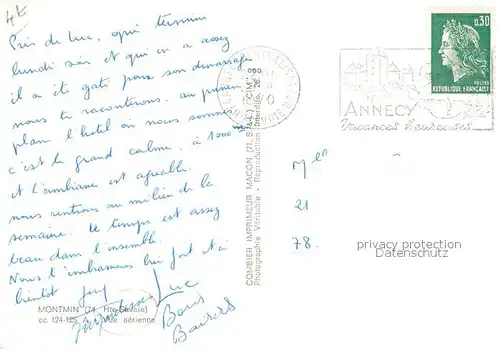 4E
Près de Luc, qui termine
lundi soir et qui en a assez
il a été gâté pour son démarrage
nous te raconterons. au premier
plan l'hotel où nous sommes
c'est le grand calme, à 1000 m
et l'ambiance est agréable.
nous rentrons au milieu de la
semaine. Le temps est assez
beau dans l'ensemble.
Nous t'embrassons bien fort et à
bientôt
Luc
Bons
Baisers
MONTMIN (74. Hte-Savoie)
cc 124-125 A - Vue aérienne
COMBIER IMPRIMEUR MACON (71. S.-&-L.) "CIM"
Photographie Véritable - Reproduction Interdite
ANNECY
Vacances heureuses
0,30
POSTES
REPUBLIQUE FRANÇAISE
21
78.
privacy protection
Datenschutz